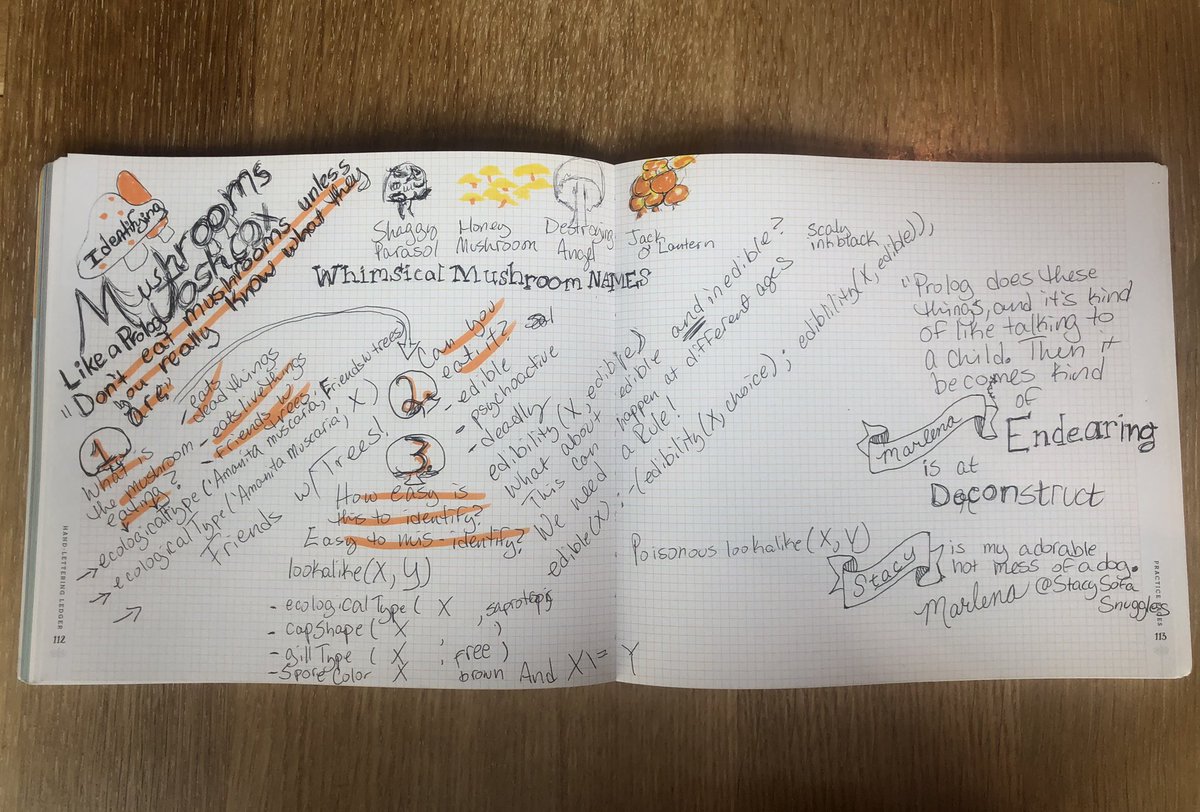 Identifying
Mushrooms
Josh Cox
Like a Prolog
"Don't eat mushrooms unless
you really know what they
are."
Shaggy
Parasol
Honey
Mushroom
Destroying
Angel
Jack
O'Lantern
Scaly
ink black
Whimsical Mushroom NAMES
1
What is
the mushroom
eating?
- eats
dead things
- eats live things
- Friends w
trees
→ ecologicalType('Amanita muscaria', Friends w trees)
→ ecologicalType('Amanita muscaria', X)
Friends w/ Trees!
2.
Can you
eat it?
- edible
- psychoactive
- deadly
edibility(X, edible)
What about edible and inedible?
This can happen at different ages
We need a Rule!
edible(X) :- (edibility(X, choice); edibility(X, edible)),
3.
How easy is
this to identify?
Easy to mis-identify?
lookalike(X, Y)
- ecologicalType( X
- capShape( X , )
- gillType ( X , free )
- Spore Color X brown And X \= Y
Poisonous lookalike(X, Y)
"Prolog does these
things, and it's kind
of like talking to
a child. Then it
becomes kind
of
Endearing
Marlena
is at
Deconstruct
Stacy
is my adorable
hot mess of a dog.
Marlena @StacySofa
Snuggles
HAND-LETTERING LEDGER
112
113